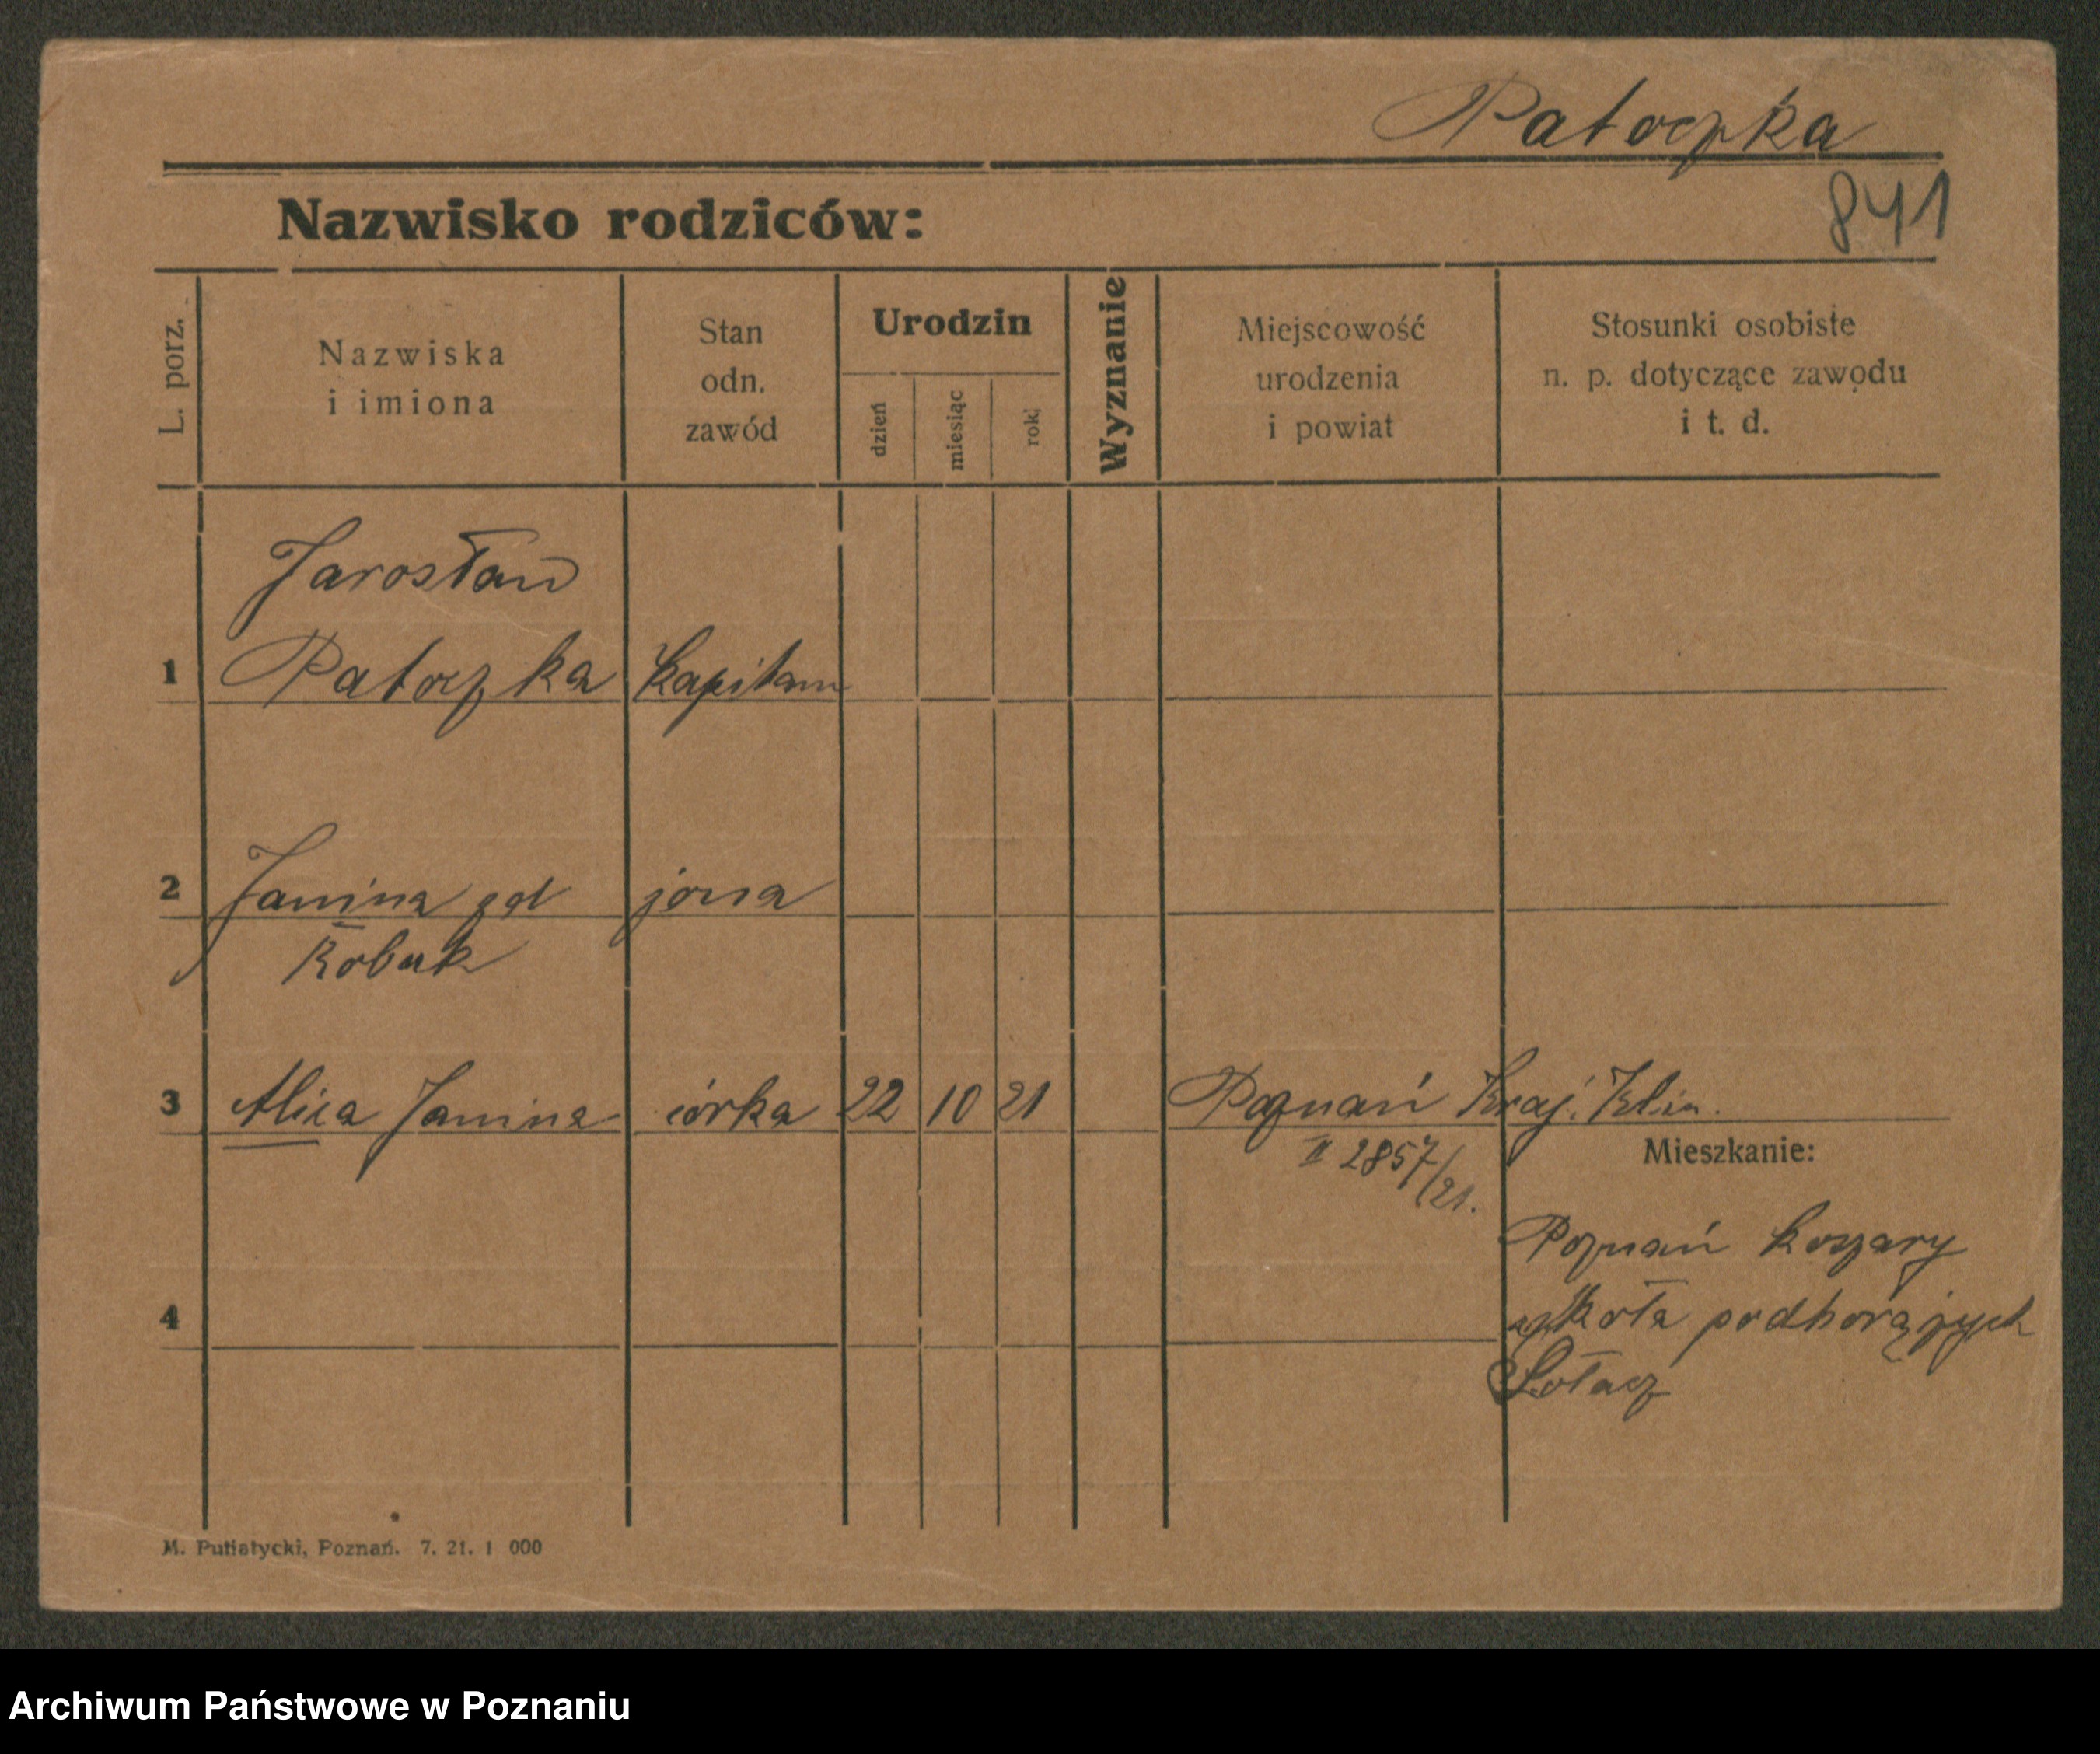 Patoczka
841
Nazwisko rodziców:
L. porz.
Nazwiska
i imiona
Stan
odn.
zawód
Urodzin
dzień
miesiąc
rok
Wyznanie
Miejscowość
urodzenia
i powiat
Stosunki osobiste
n. p. dotyczące zawodu
i t. d.
Jarosław
1 Patoczka kapitan
2 Janina zd żona
Robak
3 Alica Janina córka 22 10 21 Poznań Kraj. Klin.
II 2857/21.
Mieszkanie:
Poznań koszary
szkoła podhorążych
4
Sołacz
M. Putiatycki, Poznań. 7. 21. 1 000
Archiwum Państwowe w Poznaniu